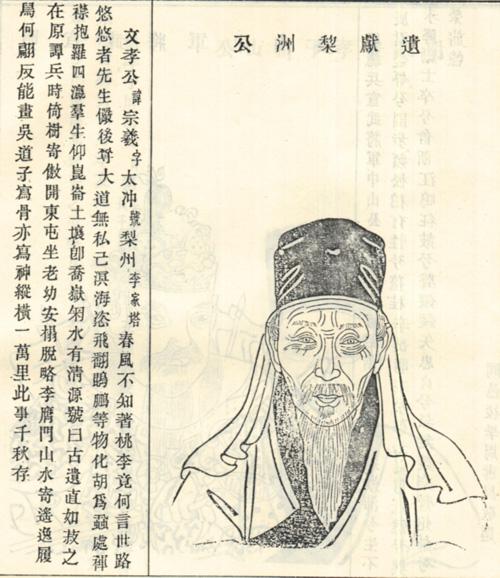 遺獻梨洲公
文孝公諱宗羲字太冲號梨州李家塔春風不知著桃李竟何言世路
悠悠者先生儼後尊大道無私己溟海恣飛翻鵾鵬等物化胡爲蝨處褌
襟抱羅四瀛羣生仰崑崙土壤卽喬嶽匊水有淸源號曰古遺直如茇之
在原譚兵時倚樹寄傲開東屯坐老幼安榻脫略李膺門山水寄遙逸履
舄何翩反能畫吳道子寫骨亦寫神縱橫一萬里此事千秋存